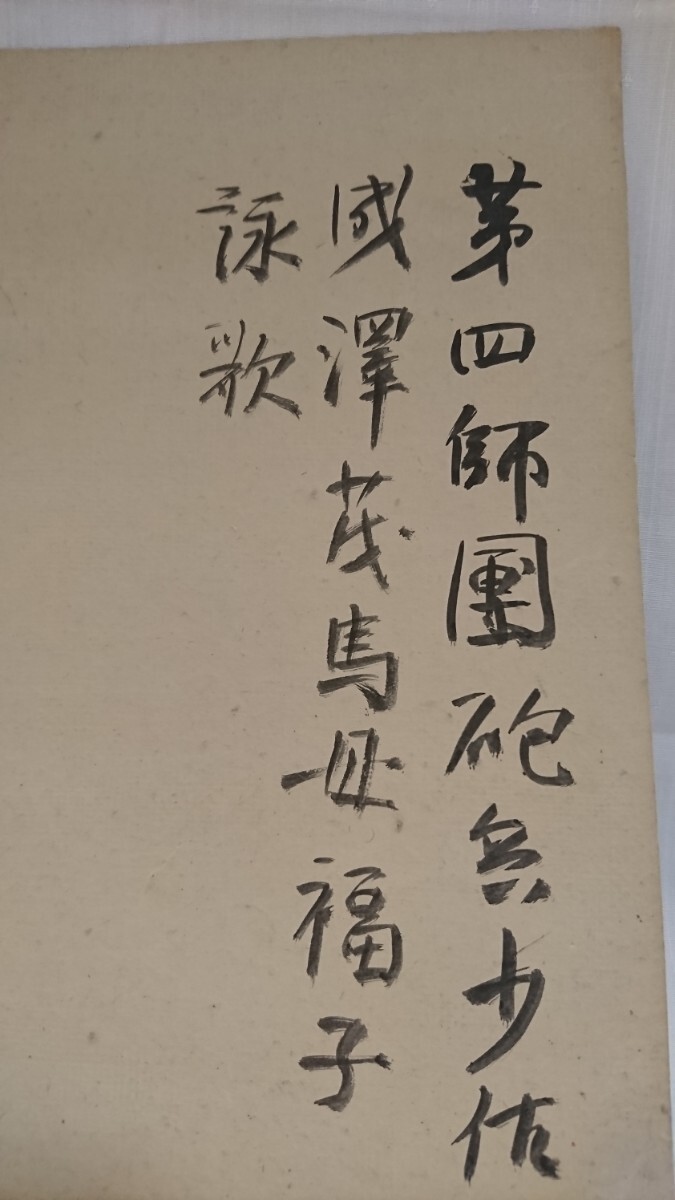 第四師團砲兵少佐
成澤茂馬母福子
詠歌